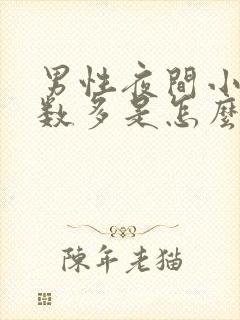 男性夜間小
數多是怎麼
陳年老猫